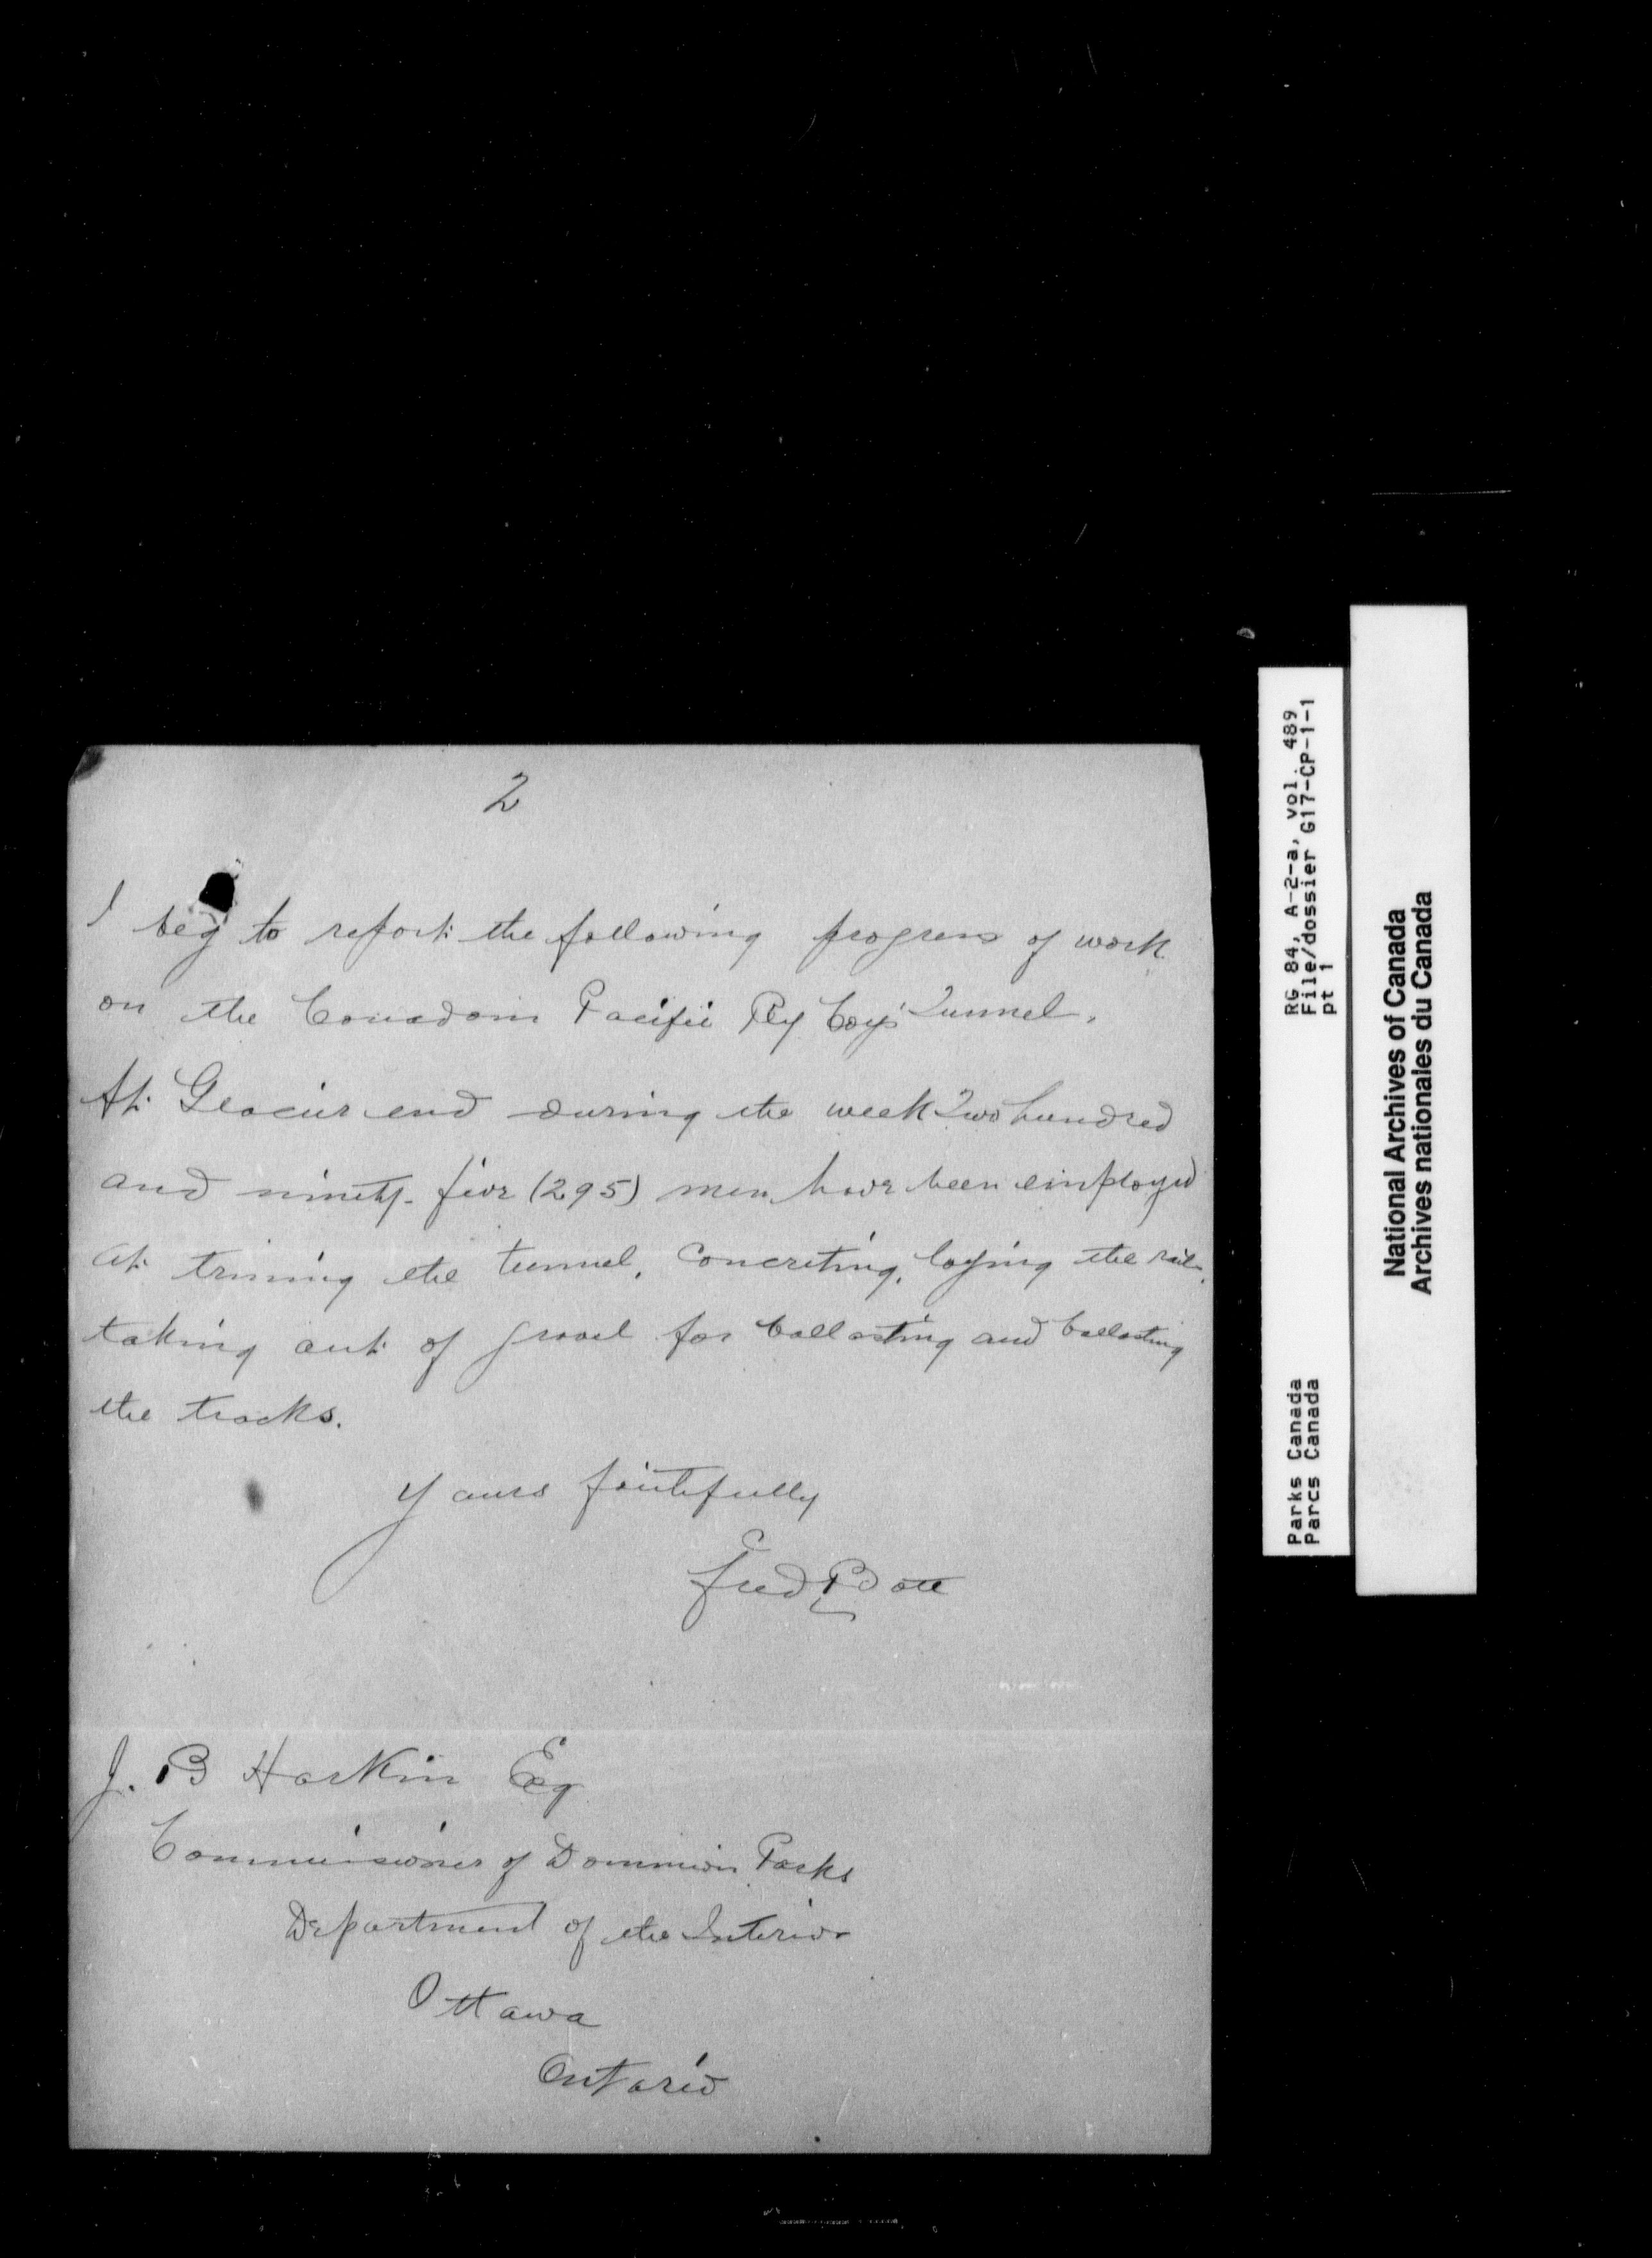 2
I beg to report the following progress of work
on the Canadian Pacific Rly Coy's Tunnel.
At Glacier end during the week Two hundred
and ninety-five (295) men have been employed
at triming the tunnel, Concreting, laying the rails,
taking out of gravel for ballasting and ballasting
the tracks.
Yours faithfully
Fred Bott
J. B Harkin Esq
Commissioner of Dominion Parks
Department of the Interior
Ottawa
Ontario
RG 84, A-2-a, vol. 489
File/dossier G17-CP-1-1
pt 1
Parks Canada
Parcs Canada
National Archives of Canada
Archives nationales du Canada